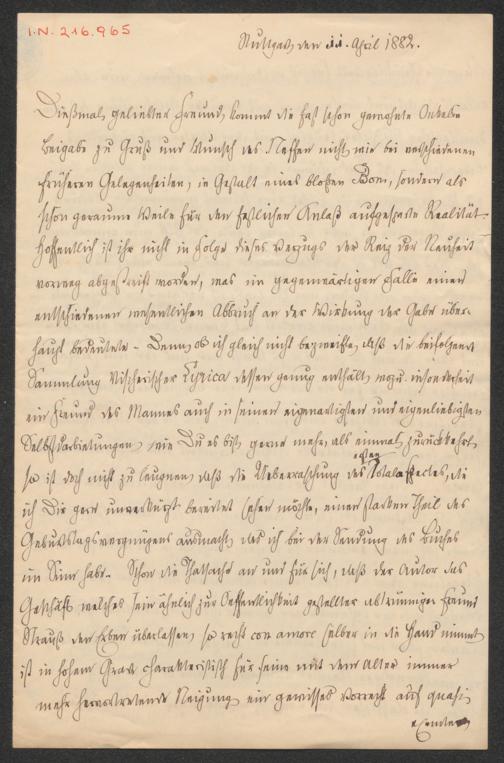 I.N. 216.965
Stuttgart, den 11. April 1882.
Dießmal, geliebter Freund, kommt die fast schon gewohnte Onkels-
Beigabe zu Gruß und Wunsch des Neffen nicht, wie bei verschiedenen
früheren Gelegenheiten, in Gestalt eines bloßen Bons, sondern als
schon geraume Weile für den festlichen Anlaß aufgesparte Realität.
Hoffentlich ist ihr nicht in Folge dieses Verzugs der Reiz der Neuheit
vorweg abgestreift worden, was im gegenwärtigen Falle einen
entschiedenen wesentlichen Abbruch an der Wirkung der Gabe über-
haupt bedeutete. Denn, ob ich gleich nicht bezweifle, daß die beifolgende
Sammlung Vischerischer Lyrica dessen genug enthält, wozu insonderheit
ein Freund des Mannes auch in seinen eigenartigsten und eigenliebigsten
Selbstdarbietungen, wie Du es bist, gerne mehr, als einmal, zurückkehrt,
so ist doch nicht zu leugnen, daß die Ueberraschung des ersten Totaleffectes, die
ich Dir gern unverkürzt bereitet sehen möchte, einen starken Theil des
Geburtstagsvergnügens ausmacht, das ich bei der Sendung des Buches
im Sinn habe. Schon die Thatsache an und für sich, daß der Autor das
Geschäft, welches sein ähnlich zur Oeffentlichkeit gestellter abtrünniger Freund
Strauß den Erben überlassen, so recht con amore selber in die Hand nimmt,
ist in hohem Grade charakteristisch für seine mit dem Alter immer
mehr hervortretende Neigung, ein gewisses Vorrecht auf quasi